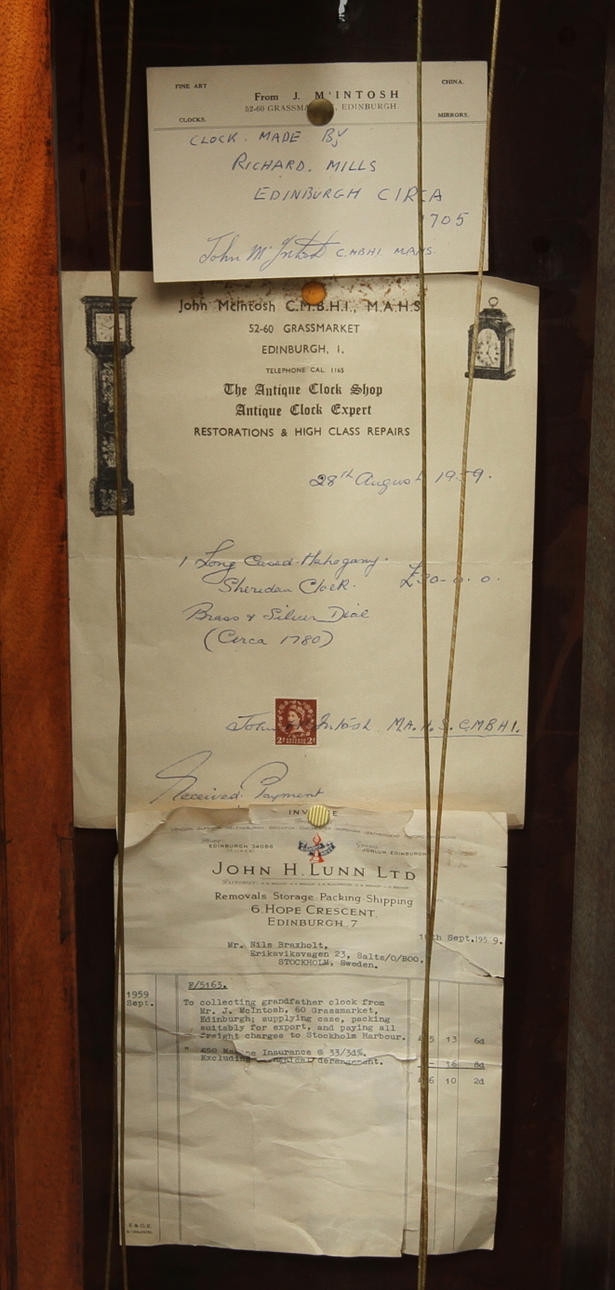 FINE ART
CHINA.
From J. McINTOSH
52-60 GRASSMA , EDINBURGH.
CLOCKS.
MIRRORS.
CLOCK. MADE By
RICHARD. MILLS
EDINBURGH CIRCA
1705
John McIntosh C.MBHI. MAHS.
John McIntosh C.M.B.H.I., M.A.H.S
52-60 GRASSMARKET
EDINBURGH, 1.
TELEPHONE CAL. 1165
The Antique Clock Shop
Antique Clock Expert
RESTORATIONS & HIGH CLASS REPAIRS
28th August 1959.
1 Long Cased Mahogany.
Sheriden Clock. £30-0.0.
Brass & Silver Dial
(Circa 1780)
John McIntosh. M.A.H.S. C.MBHI.
Received. Payment
INVOICE
EDINBURGH 34086
JOHN H. LUNN LTD
Removals Storage Packing Shipping
6. HOPE CRESCENT,
EDINBURGH, 7
Sept. 1959.
Mr. Nils Braxholt,
Eriksviksvagen 23, Salts/O/BOO,
STOCKHOLM, Sweden.
1959
Sept.
F/5163.
To collecting grandfather clock from
Mr. J. McIntosh, 60 Grassmarket,
Edinburgh; supplying case, packing
suitably for export, and paying all
freight charges to Stockholm Harbour. 5 13 6d
" £50 Marine Insurance @ 33/3d%. 
Excluding mechanical derangement. 16 8d
£6 10 2d
E & O.E.